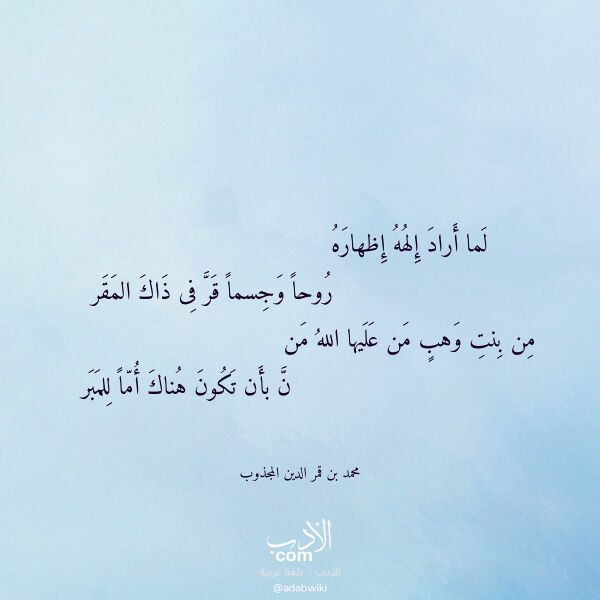 لَما أَرادَ إِلهُهُ إِظهارَهُ
رُوحاً وَجِسماً قَرَّ فِى ذَاكَ المَقَر
مِن بِنتِ وَهبٍ مَن عَلَيها اللهُ مَن
نَّ بأَن تَكُونَ هُناكَ أُمّاً لِلمَبَر
محمد بن قمر الدين المجذوب
الأدب
com
الأدب .. بلغة عربية
@adabwiki